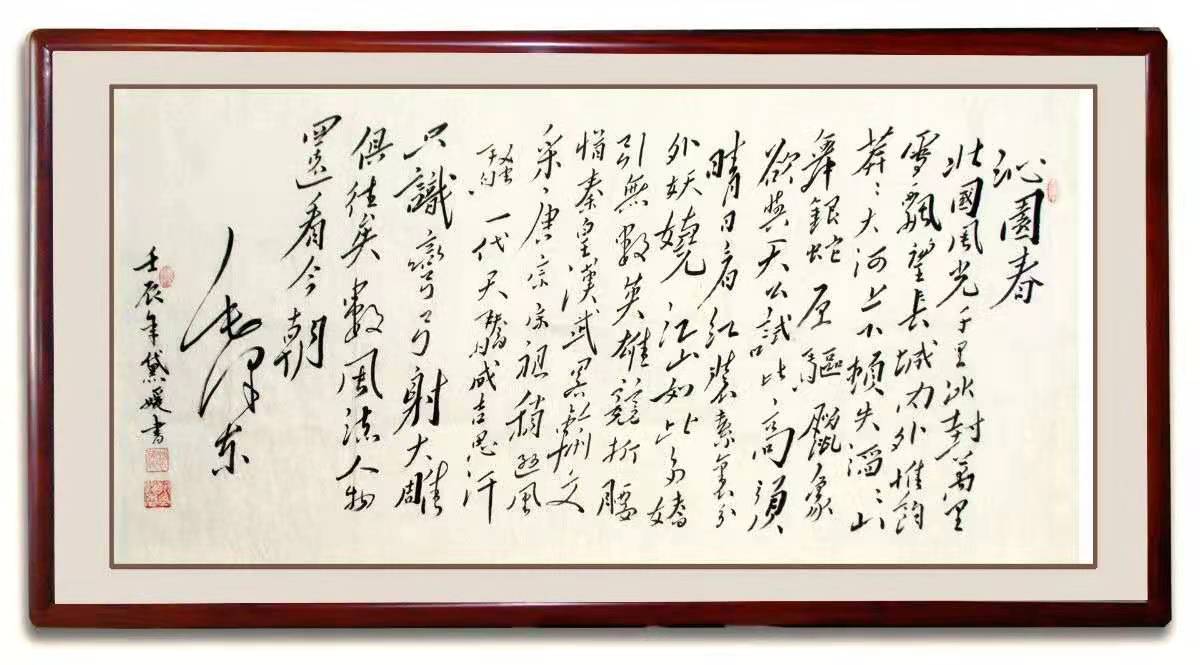 沁園春
北國風光千里冰封萬里
雪飄望長城內外惟餘
莽々大河上下頓失滔々山
舞銀蛇原驅臘象
欲與天公試比高須
晴日看紅裝素裹分
外妖嬈江山如此多嬌
引無數英雄競折腰
惜秦皇漢武略輸文
采唐宗宋祖稍遜風
騷一代天驕成吉思汗
只識彎弓射大雕
俱往矣數風流人物
還看今朝
毛澤東
壬辰年黛媛書